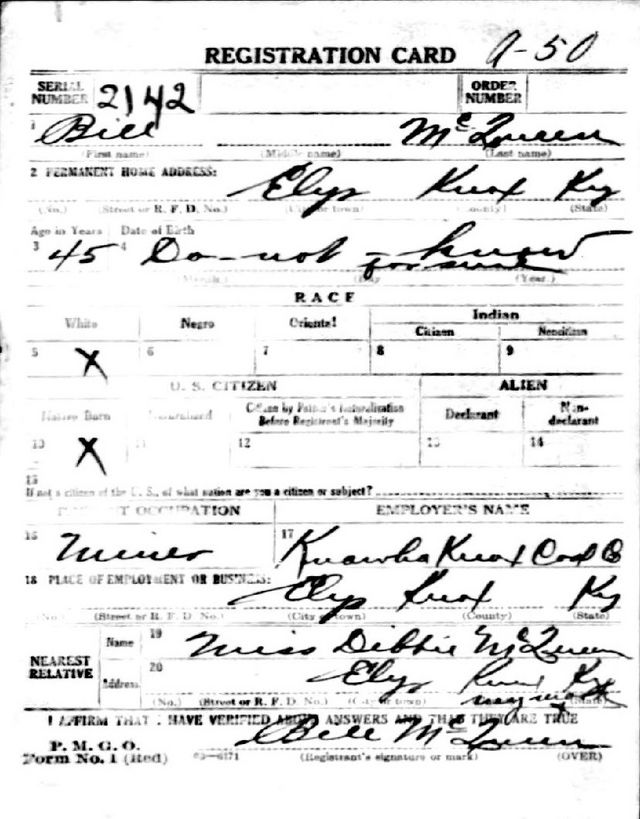 REGISTRATION CARD A-50
SERIAL NUMBER 2142 ORDER NUMBER
1 Bill McQueen
(First name) (Middle name) (Last name)
2 PERMANENT HOME ADDRESS: Elys Knox Ky
(No.) (Street or R. F. D. No.) (City or town) (County) (State)
Age in Years Date of Birth
3 45 4 Do-not-know
for sure
(Month.) (Day (Year.)
RACE
White Negro Oriental Indian
Citizen Noncitizen
5 X 6 7 8 9
U. S. CITIZEN ALIEN
Native Born Naturalized Citizen by Father's Naturalization Before Registrant's Majority Declarant Non-declarant
10 X 11 12 13 14
15
If not a citizen of the U. S., of what nation are you a citizen or subject?
PRESENT OCCUPATION EMPLOYER'S NAME
16 Miner 17 Knawha Knox Coal Co
18 PLACE OF EMPLOYMENT OR BUSINESS: Elys Knox Ky
(No.) (Street or R. F. D. No.) (City or town) (County) (State)
NEAREST RELATIVE Name 19 Miss Debbie McQueen
Address 20 Elys Knox Ky
(No.) (Street or R. F. D. No.) (City or town) (State)
I AFFIRM THAT I HAVE VERIFIED ABOVE ANSWERS AND THAT THEY ARE TRUE
P. M. G. O.
Form No. 1 (Red) 03-6171 Bill McQueen
(Registrant's signature or mark) (OVER)